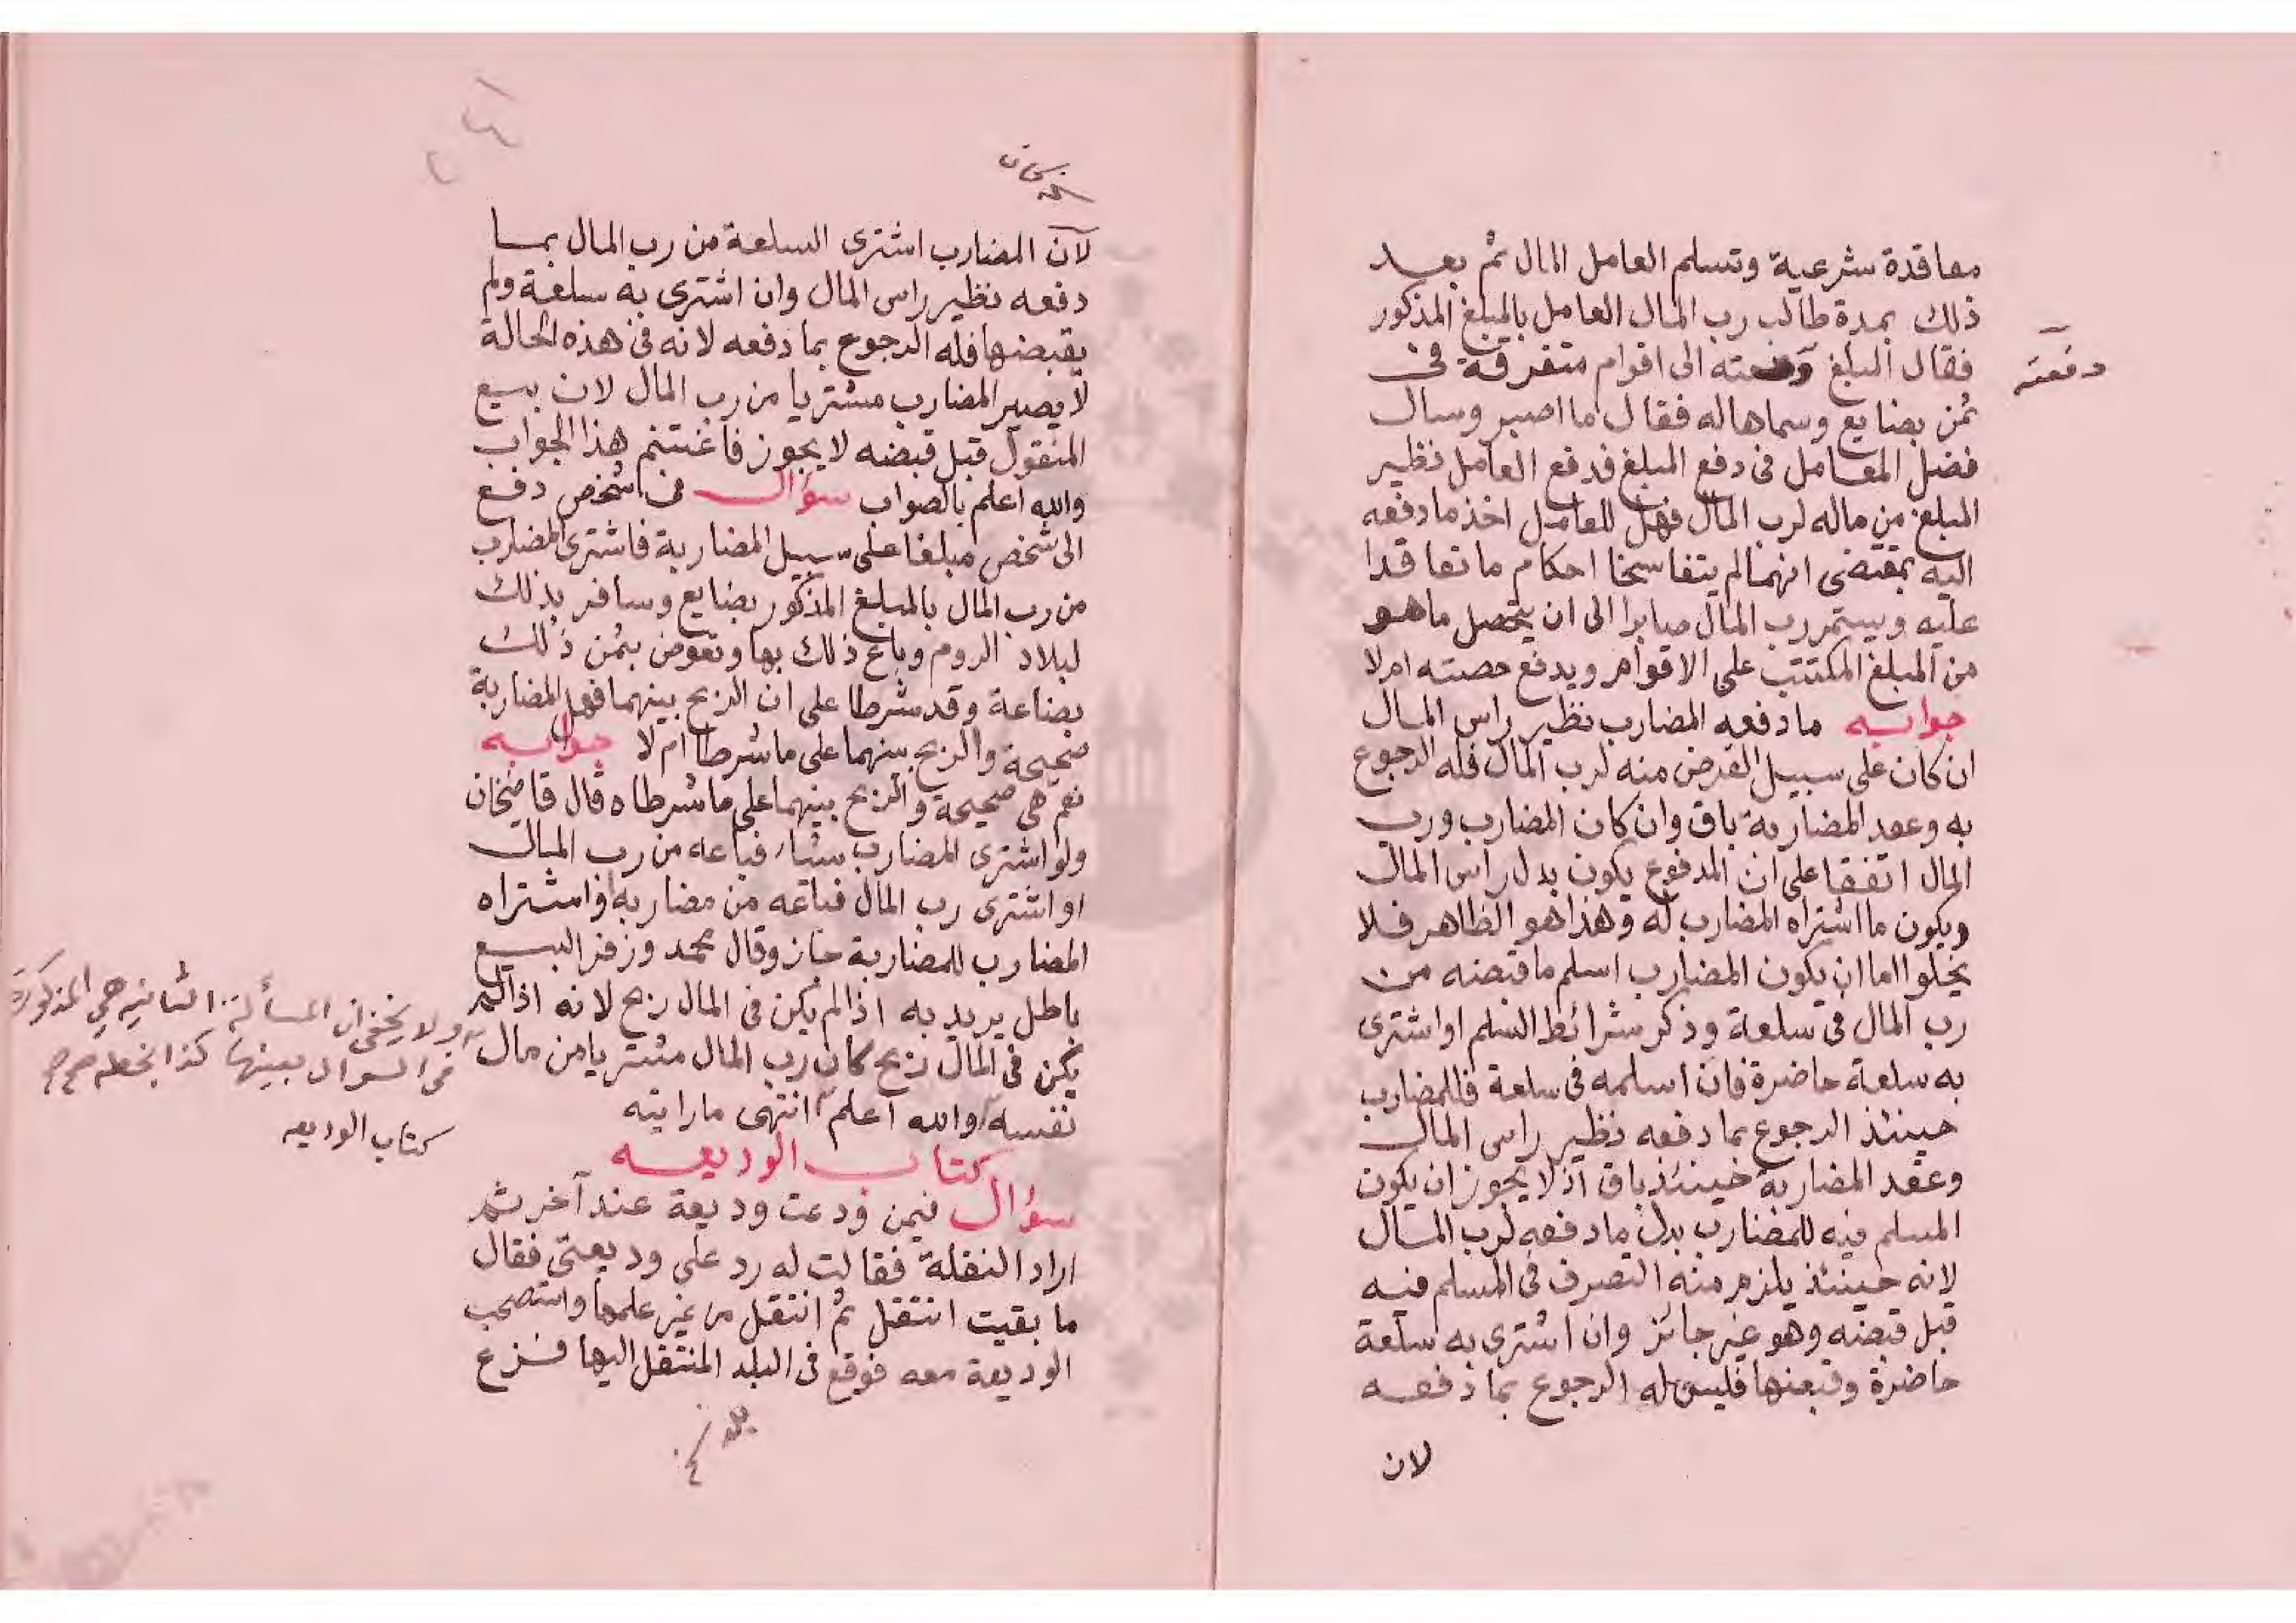 معاقدة شرعية وتسلم العامل المال ثم بعد
ذلك بمدة طالب رب المال العامل بالمبلغ المذكور
فقال المبلغ دفعته الى اقوام متفرقة فى
دفعته
ثمن بضايع وسماها له فقال ما اصبر وسال
فضل المعامل فى دفع المبلغ فدفع العامل نظير
المبلغ من ماله لرب المال فهل للعامل اخذ ما دفعه
اليه بمقتضى انهما لم يتفاسخا احكام ما تعاقدا
عليه ويستمر رب المال صابرا الى ان يتحصل ما هو
من المبلغ المكتتب على الاقوام ويدفع حصته ام لا
جوابه ما دفعه المضارب نظير راس المال
ان كان على سبيل القرض منه لرب المال فله الرجوع
به وعقد المضاربة باق وان كان المضارب ورب
المال اتفقا على ان المدفوع يكون بدل راس المال
ويكون ما اشتراه المضارب له وهذا هو الظاهر فلا
يخلوا اما ان يكون المضارب اسلم ما قبضه من
رب المال فى سلعة وذكر شرائط السلم او اشترى
به سلعة حاضرة فان اسلمه فى سلعة فللمضارب
حينئذ الرجوع بما دفعه نظير راس المال
وعقد المضاربة حينئذ باق اذ لا يجوز ان يكون
المسلم فيه للمضارب بدل ما دفعه لرب المال
لانه حينئذ يلزم منه التصرف فى المسلم فيه
قبل قبضه وهو غير جائز وان اشترى به سلعة
حاضرة وقبضها فليس له الرجوع بما دفعه
لان
لان المضارب اشترى السلعة من رب المال بما
دفعه نظير راس المال وان اشترى به سلعة ولم
يقبضها فله الرجوع بما دفعه لانه فى هذه الحالة
لا يصير المضارب مشتريا من رب المال لان بيع
المنقول قبل قبضه لا يجوز فاغتنم هذا الجواب
والله اعلم بالصواب سؤال فى شخص دفع
الى شخص مبلغا على سبيل المضاربة فاشترى المضارب
من رب المال بالمبلغ المذكور بضايع وسافر بذلك
لبلاد الروم وباع ذلك بها وتعوض بثمن ذلك
بضاعة وقد شرطا على ان الربح بينهما فهل المضاربة
صحيحة والربح بينهما على ما شرطا ام لا جوابه
نعم هى صحيحة والربح بينهما على ما شرطاه قال قاضيخان
ولو اشترى المضارب شيئا فباعه من رب المال
او اشترى رب المال فباعه من مضاربه او اشتراه
المضارب للمضاربة جاز وقال محمد وزفر البيع
باطل يريد به اذا لم يكن فى المال ربح لانه اذا لم
يكن فى المال ربح كان رب المال مشتريا من مال
نفسه والله اعلم انتهى ما رايته
ولا يخفى ان المسألة الثانيه هى المذكورة
فى السوال بعينها كذا بخطه
كتاب الوديعه
كتاب الوديعه
سؤال فيمن ودعت وديعة عند آخر ثم
اراد النقلة فقالت له رد على وديعتى فقال
ما بقيت انتقل ثم انتقل من غير علمها واستصحب
الوديعة معه فوقع فى البلد المنتقل اليها فزع